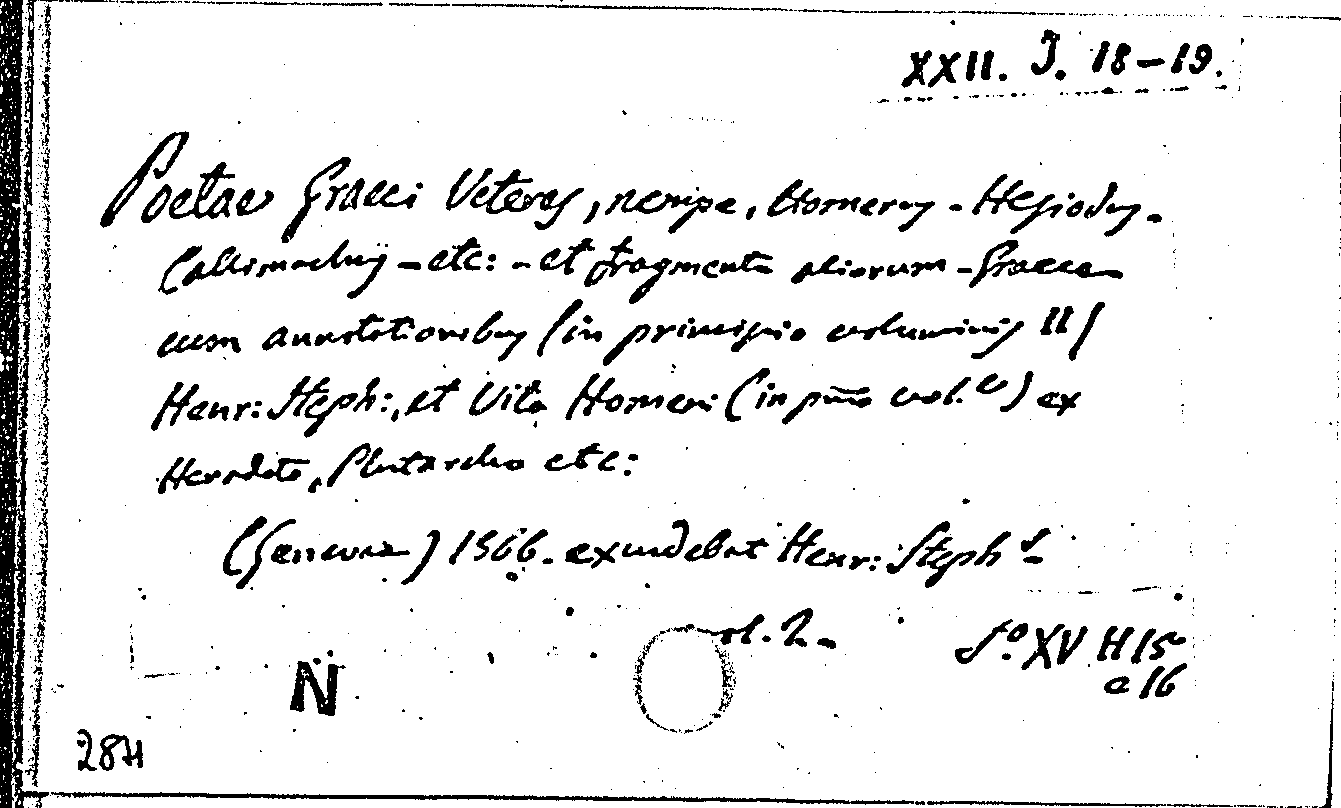 XXII. J. 18-19.
Poetae Graeci Veteres, nempe, Homerus - Hesiodus -
Callimachus - etc: - et fragmenta aliorum - Graece
cum annotationibus (in principio voluminis II)
Henr: Steph:, et Vita Homeri (in pño vol.) ex
Herodoto, Plutarcho etc:
(Genevae) 1566. excudebat Henr: Steph
vol. 2 -
fo XV H 15
a 16
N